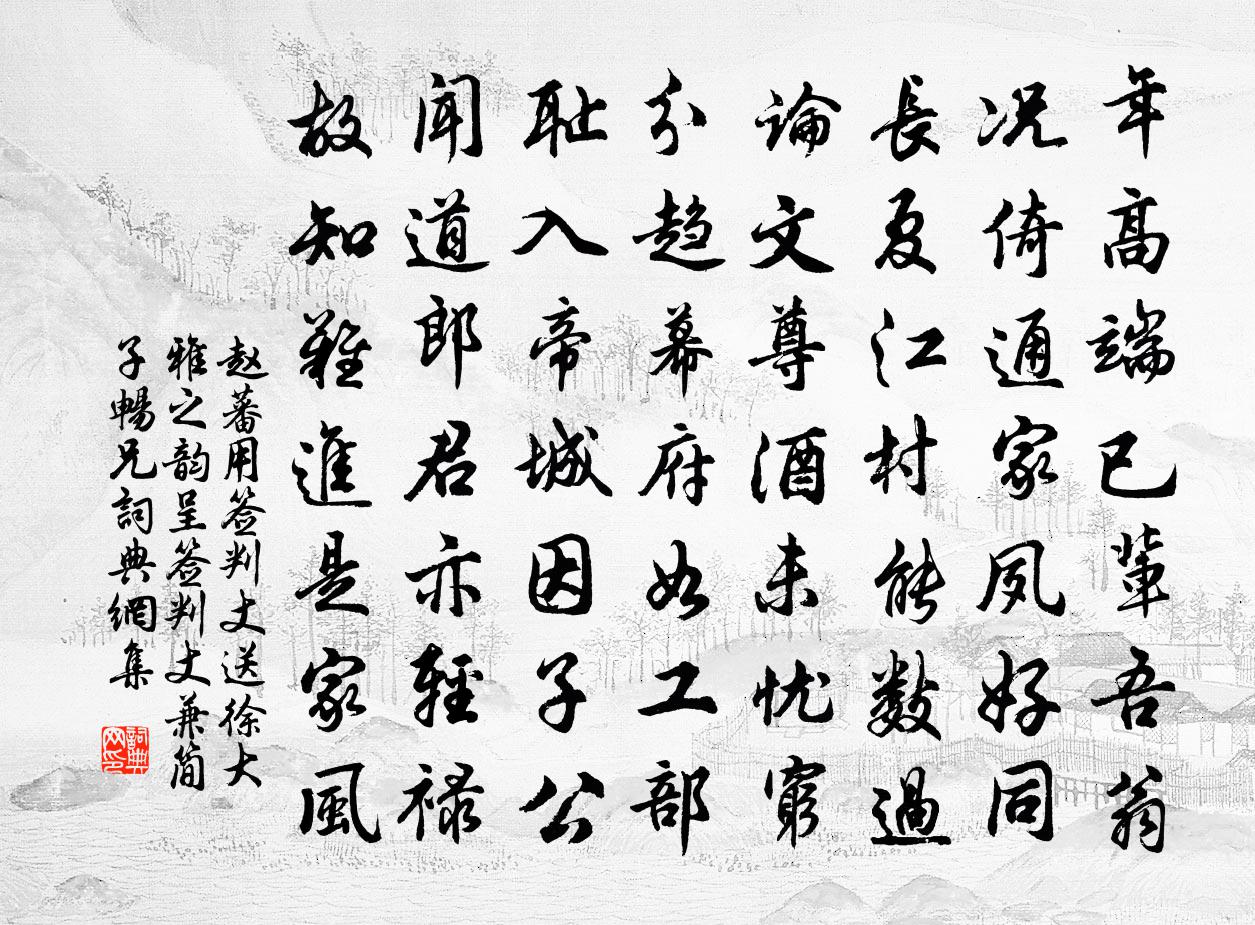 年高端已輩吾翁
况倚通家夙好同
長夏江村能數過
論文尊酒未忧窮
分趨幕府如工部
耻入帝城因子公
闻道郎君亦輕禄
故知難進是家風
赵蕃用签判丈送徐大
雅之韵呈签判丈兼简
子暢兄詞典網集
詞典
网印